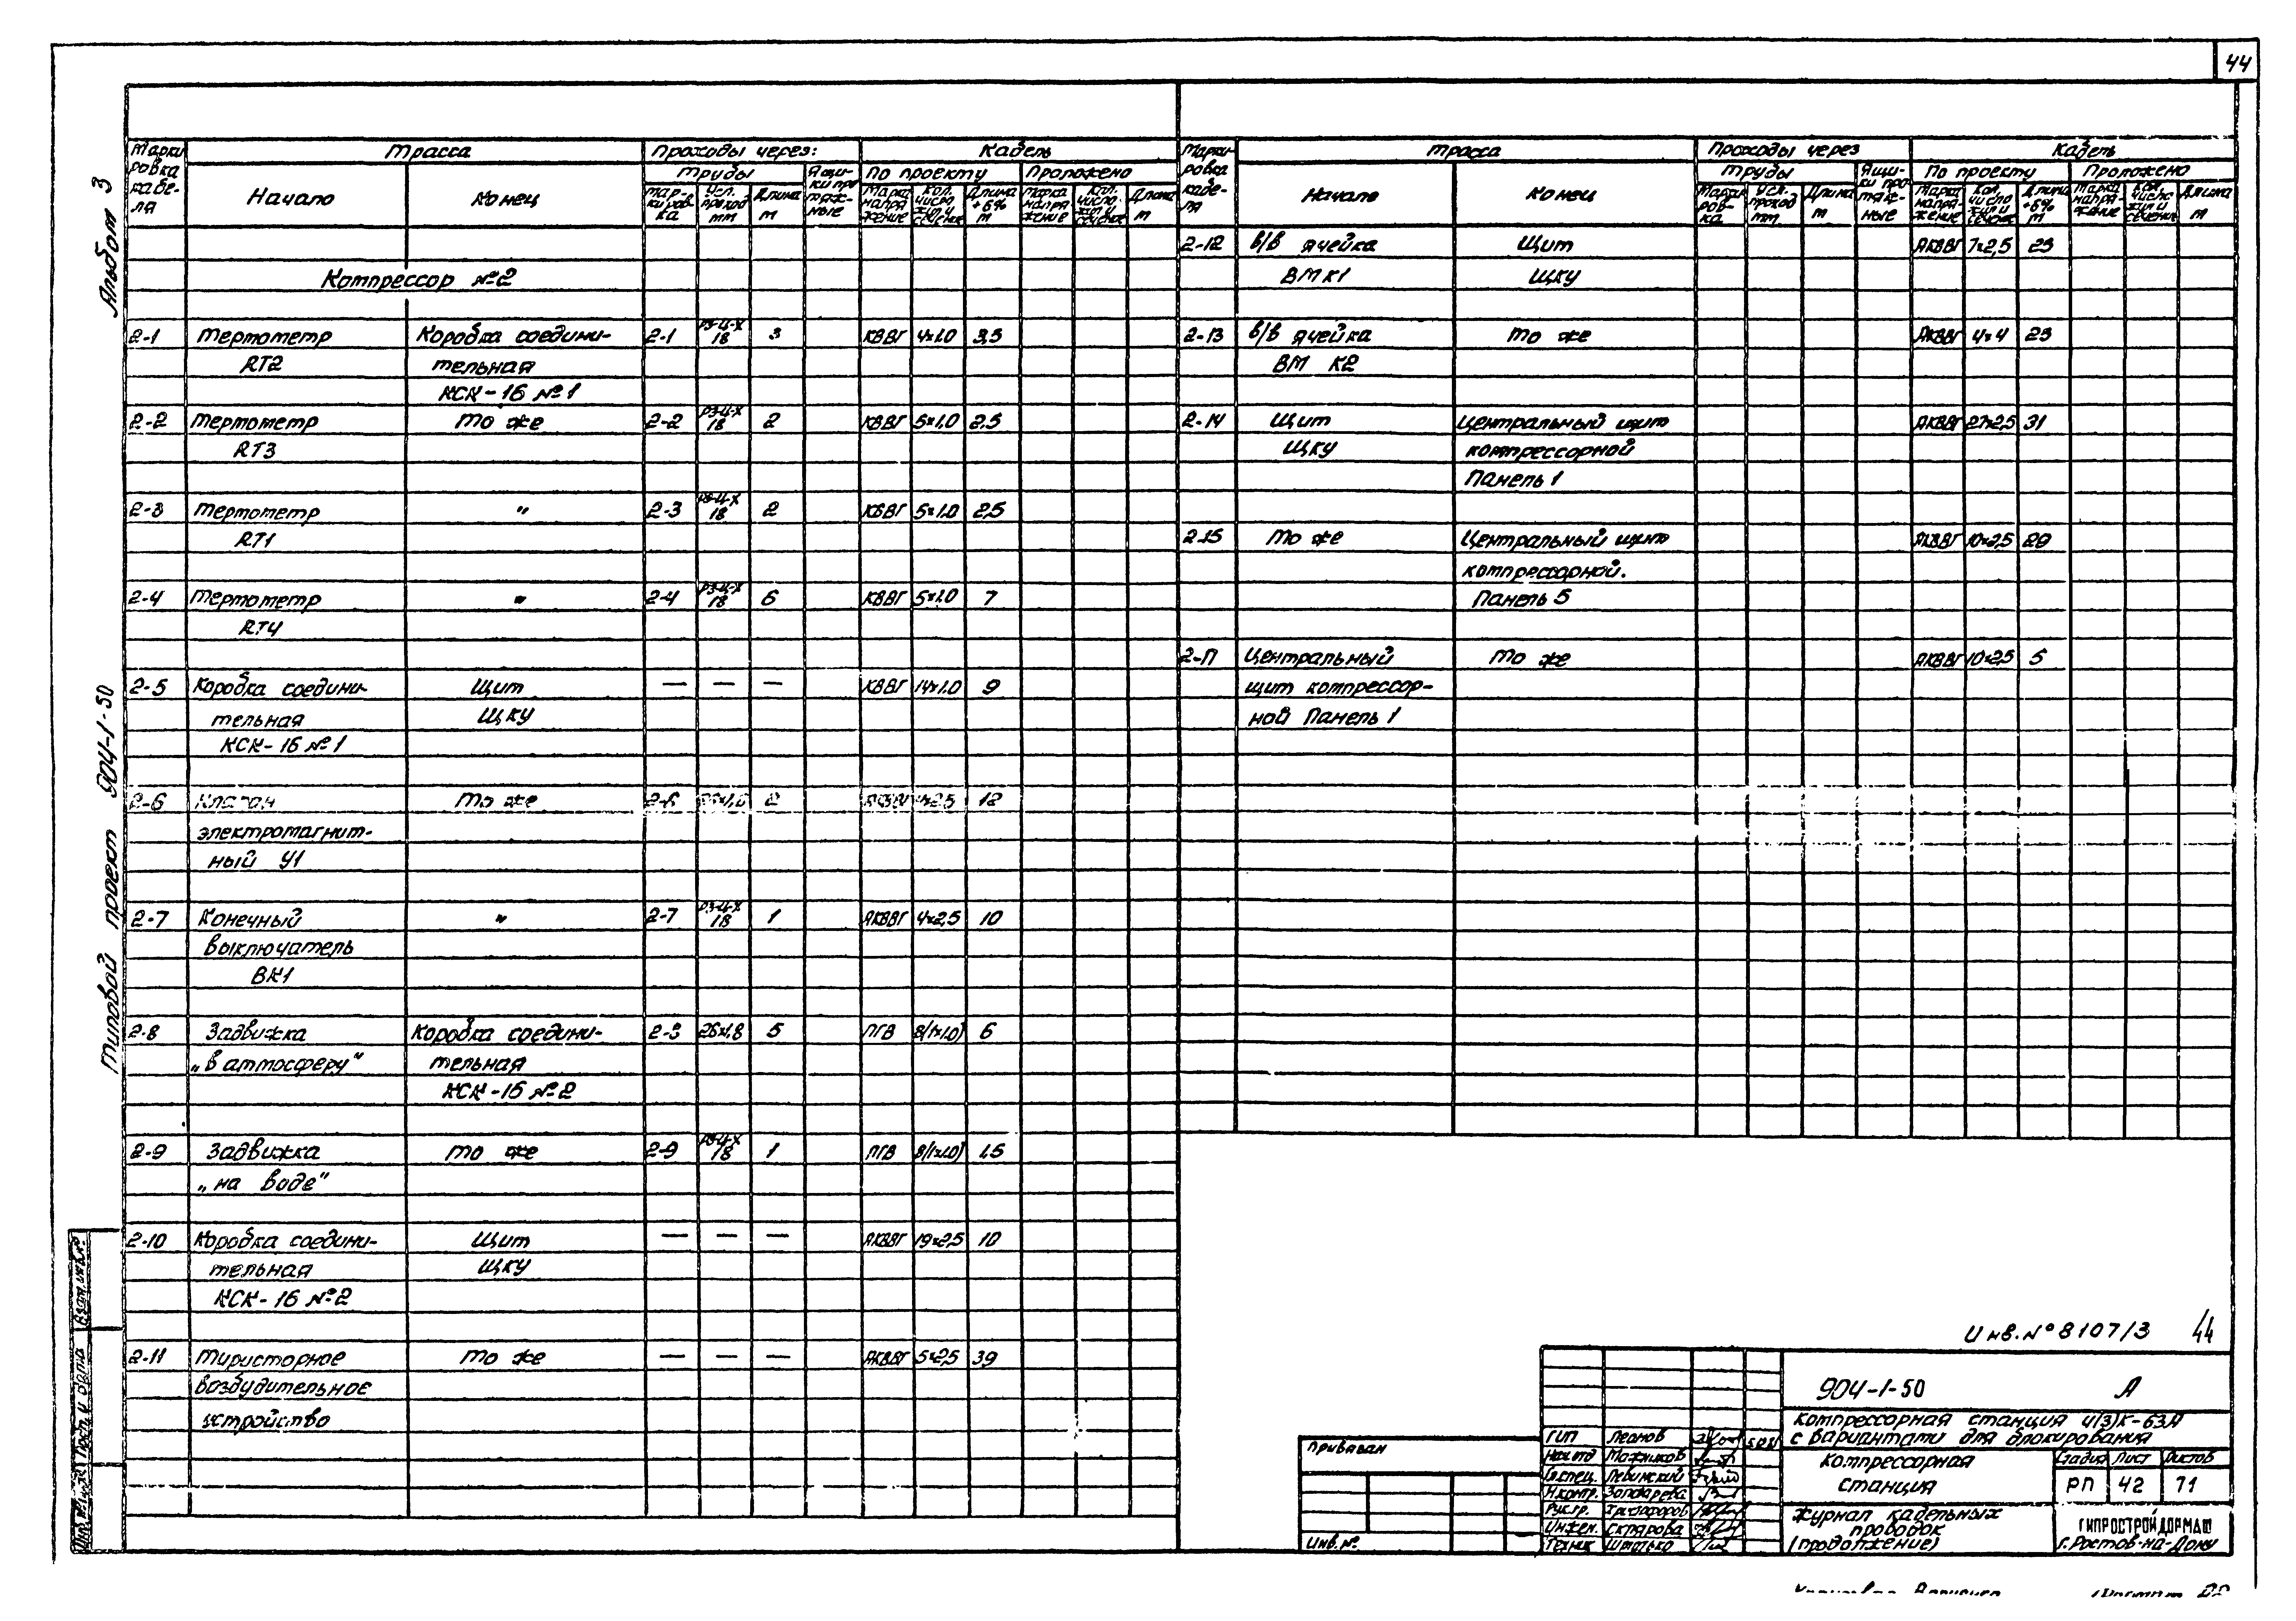 44
Альбом 3
Типовой проект 904-1-50
Маркировка кабеля
Трасса
Проходы через:
Кабель
Начало
Конец
Трубы
Ящики протяжные
По проекту
Проложено
Маркировка
Усл. проход мм
Длина м
Марка напряжение
Кол. число жил и сечение
Длина +6% м
Марка напряжение
Кол. число жил и сечение
Длина м
Компрессор №2
2-1 Термометр Коробка соедини- 2-1 РЗ-Ц-Х 18 3 КВВГ 4×1.0 3,5
RT2 тельная
КСК-16 №1
2-2 Термометр То же 2-2 РЗ-Ц-Х 18 2 КВВГ 5×1.0 2.5
RT3
2-3 Термометр " 2-3 РЗ-Ц-Х 18 2 КВВГ 5×1.0 2,5
RT1
2-4 Термометр " 2-4 РЗ-Ц-Х 18 6 КВВГ 5×1.0 7
RT4
2-5 Коробка соедини- Щит — — — КВВГ 14×1.0 9
тельная ЩКУ
КСК-16 №1
2-6 Клапан То же 2-6 2 4×2,5 12
электромагнит-
ный У1
2-7 Конечный " 2-7 РЗ-Ц-Х 18 1 АКВВГ 4×2,5 10
выключатель
ВК1
2-8 Задвижка Коробка соедини- 26×1,8 5 ПГВ 8(1×1.0) 6
„в атмосферу" тельная
КСК-16 №2
2-9 Задвижка То же 2-9 РЗ-Ц-Х 18 1 ПГВ 8(1×1.0) 1.5
„на воде"
2-10 Коробка соедини- Щит — — — АКВВГ 19×2,5 10
тельная ЩКУ
КСК-16 №2
2-11 Тиристорное То же — — — АКВВГ 5×2,5 39
возбудительное
устройство
Маркировка кабеля
Трасса
Проходы через
Кабель
Начало
Конец
Трубы
Ящики протяжные
По проекту
Проложено
Маркировка
Усл. проход мм
Длина м
Марка напряжение
Кол. число жил и сечение
Длина +6% м
Марка напряжение
Кол. число жил и сечение
Длина м
2-12 в/в ячейка Щит АКВВГ 7×2,5 23
ВМ К1 ЩКУ
2-13 в/в ячейка То же АКВВГ 4×4 23
ВМ К2
2-14 Щит Центральный щит АКВВГ 27×2,5 31
ЩКУ компрессорной
Панель 1
2-15 То же Центральный щит АКВВГ 10×2,5 29
компрессорной.
Панель 5
Центральный То же АКВВГ 10×2,5 5
щит компрессор-
ной Панель 1
Инв.№ 8107/3 44
904-1-50 А
Компрессорная станция 4(3)К-63А
с вариантами для блокирования
Компрессорная
станция
Стадия Лист Листов
РП 42 71
Журнал кабельных
проводок
(продолжение)
ГИПРОСТРОЙДОРМАШ
г. Ростов-на-Дону
ГИП Леонов
Нач.отд
Гл.спец. Левинский
Н.контр.
Рук.гр.
Инжен. Склярова
Техник
Привязан
Инв.№